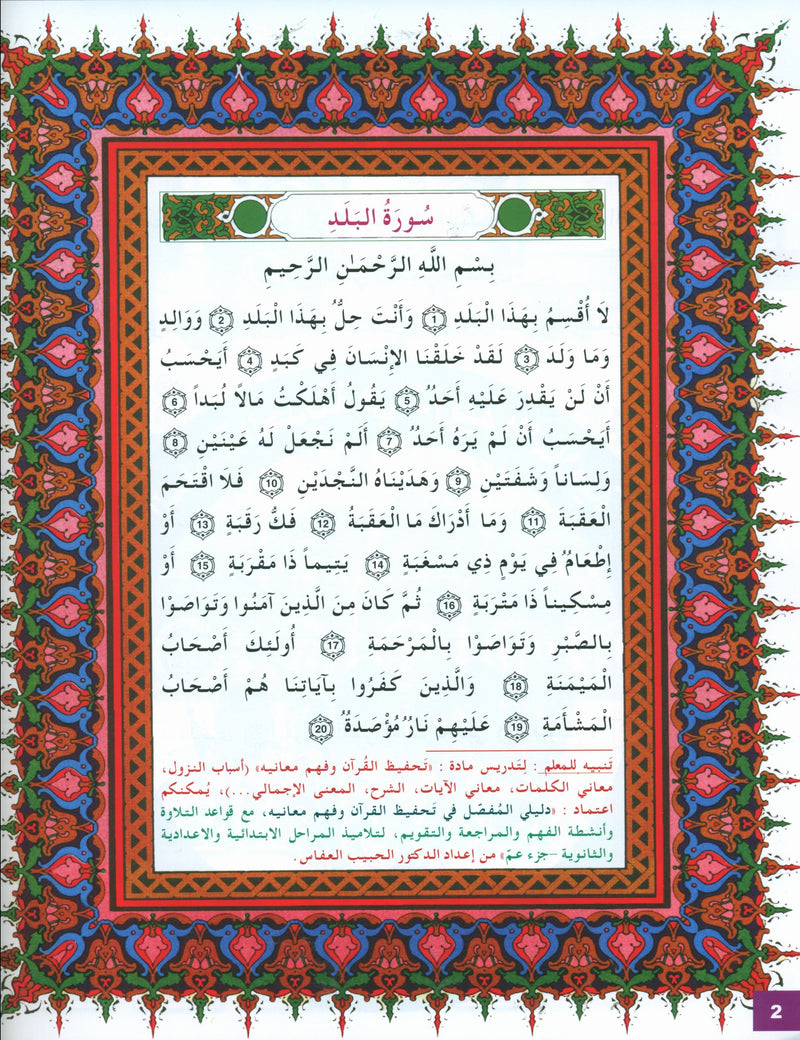 سُورَةُ البَلَدِ
بِسْمِ اللَّهِ الرَّحْمَـٰنِ الرَّحِيمِ
لَا أُقْسِمُ بِهَذَا الْبَلَدِ 1 وَأَنْتَ حِلٌّ بِهَذَا الْبَلَدِ 2 وَوَالِدٍ
وَمَا وَلَدَ 3 لَقَدْ خَلَقْنَا الإِنْسَانَ فِي كَبَدٍ 4 أَيَحْسَبُ
أَنْ لَنْ يَقْدِرَ عَلَيْهِ أَحَدٌ 5 يَقُولُ أَهْلَكْتُ مَالًا لُبَداً 6
أَيَحْسَبُ أَنْ لَمْ يَرَهُ أَحَدٌ 7 أَلَمْ نَجْعَلْ لَهُ عَيْنَيْنِ 8
وَلِسَاناً وَشَفَتَيْنِ 9 وَهَدَيْنَاهُ النَّجْدَيْنِ 10 فَلَا اقْتَحَمَ
الْعَقَبَةَ 11 وَمَا أَدْرَاكَ مَا الْعَقَبَةُ 12 فَكُّ رَقَبَةٍ 13 أَوْ
إِطْعَامٌ فِي يَوْمٍ ذِي مَسْغَبَةٍ 14 يَتِيماً ذَا مَقْرَبَةٍ 15 أَوْ
مِسْكِيناً ذَا مَتْرَبَةٍ 16 ثُمَّ كَانَ مِنَ الَّذِينَ آمَنُوا وَتَوَاصَوْا
بِالصَّبْرِ وَتَوَاصَوْا بِالْمَرْحَمَةِ 17 أُولَئِكَ أَصْحَابُ
الْمَيْمَنَةِ 18 وَالَّذِينَ كَفَرُوا بِآيَاتِنَا هُمْ أَصْحَابُ
الْمَشْأَمَةِ 19 عَلَيْهِمْ نَارٌ مُؤْصَدَةٌ 20
تَنبيه للمعلم : لِتَدريس مادة : «تَحفيظ القُرآن وفهم معانيه» (أسباب النزول،
معاني الكلمات، معاني الآيات، الشرح، المعنى الإجمالي...)، يُمكنكم
اعتماد : «دليلي المُفصّل في تَحفيظ القرآن وفهم معانيه، مع قواعد التلاوة
وأنشطة الفهم والمراجعة والتقويم، لتلاميذ المراحل الابتدائية والاعدادية
والثانوية –جزء عمّ» من إعداد الدكتور الحبيب العفاس.
2